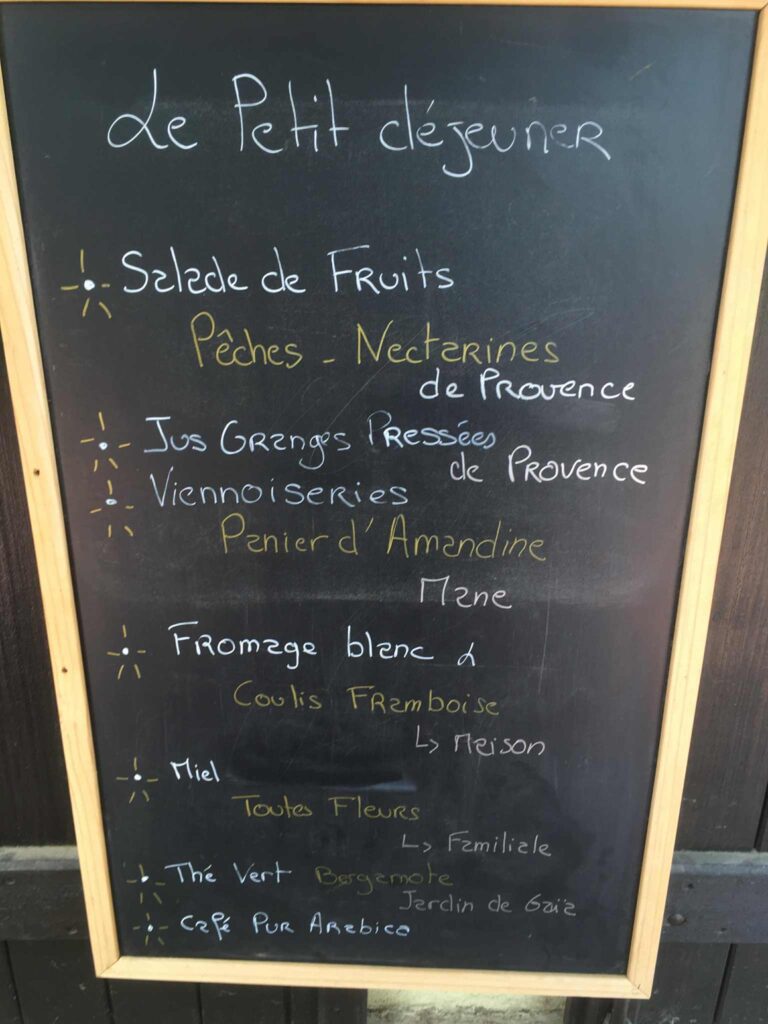 Le Petit déjeuner
Salade de Fruits
Pêches - Nectarines
de Provence
Jus Oranges Pressées
de Provence
Viennoiseries
Panier d'Amandine
Mane
Fromage blanc &
Coulis Framboise
↳ Maison
Miel
Toutes Fleurs
↳ Familiale
Thé Vert Bergamote
Jardin de Gaïa
Café Pur Arabica